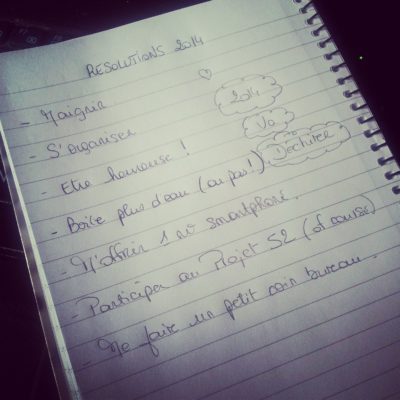 RESOLUTIONS 2014
- Maigrir
- S'organiser
- Etre heureuse !
- Boire plus d'eau (ou pas !)
- M'offrir 1 smartphone.
- Participer au Projet 52 (of course)
- Me faire un petit coin bureau.
2014
Va
Déchirer